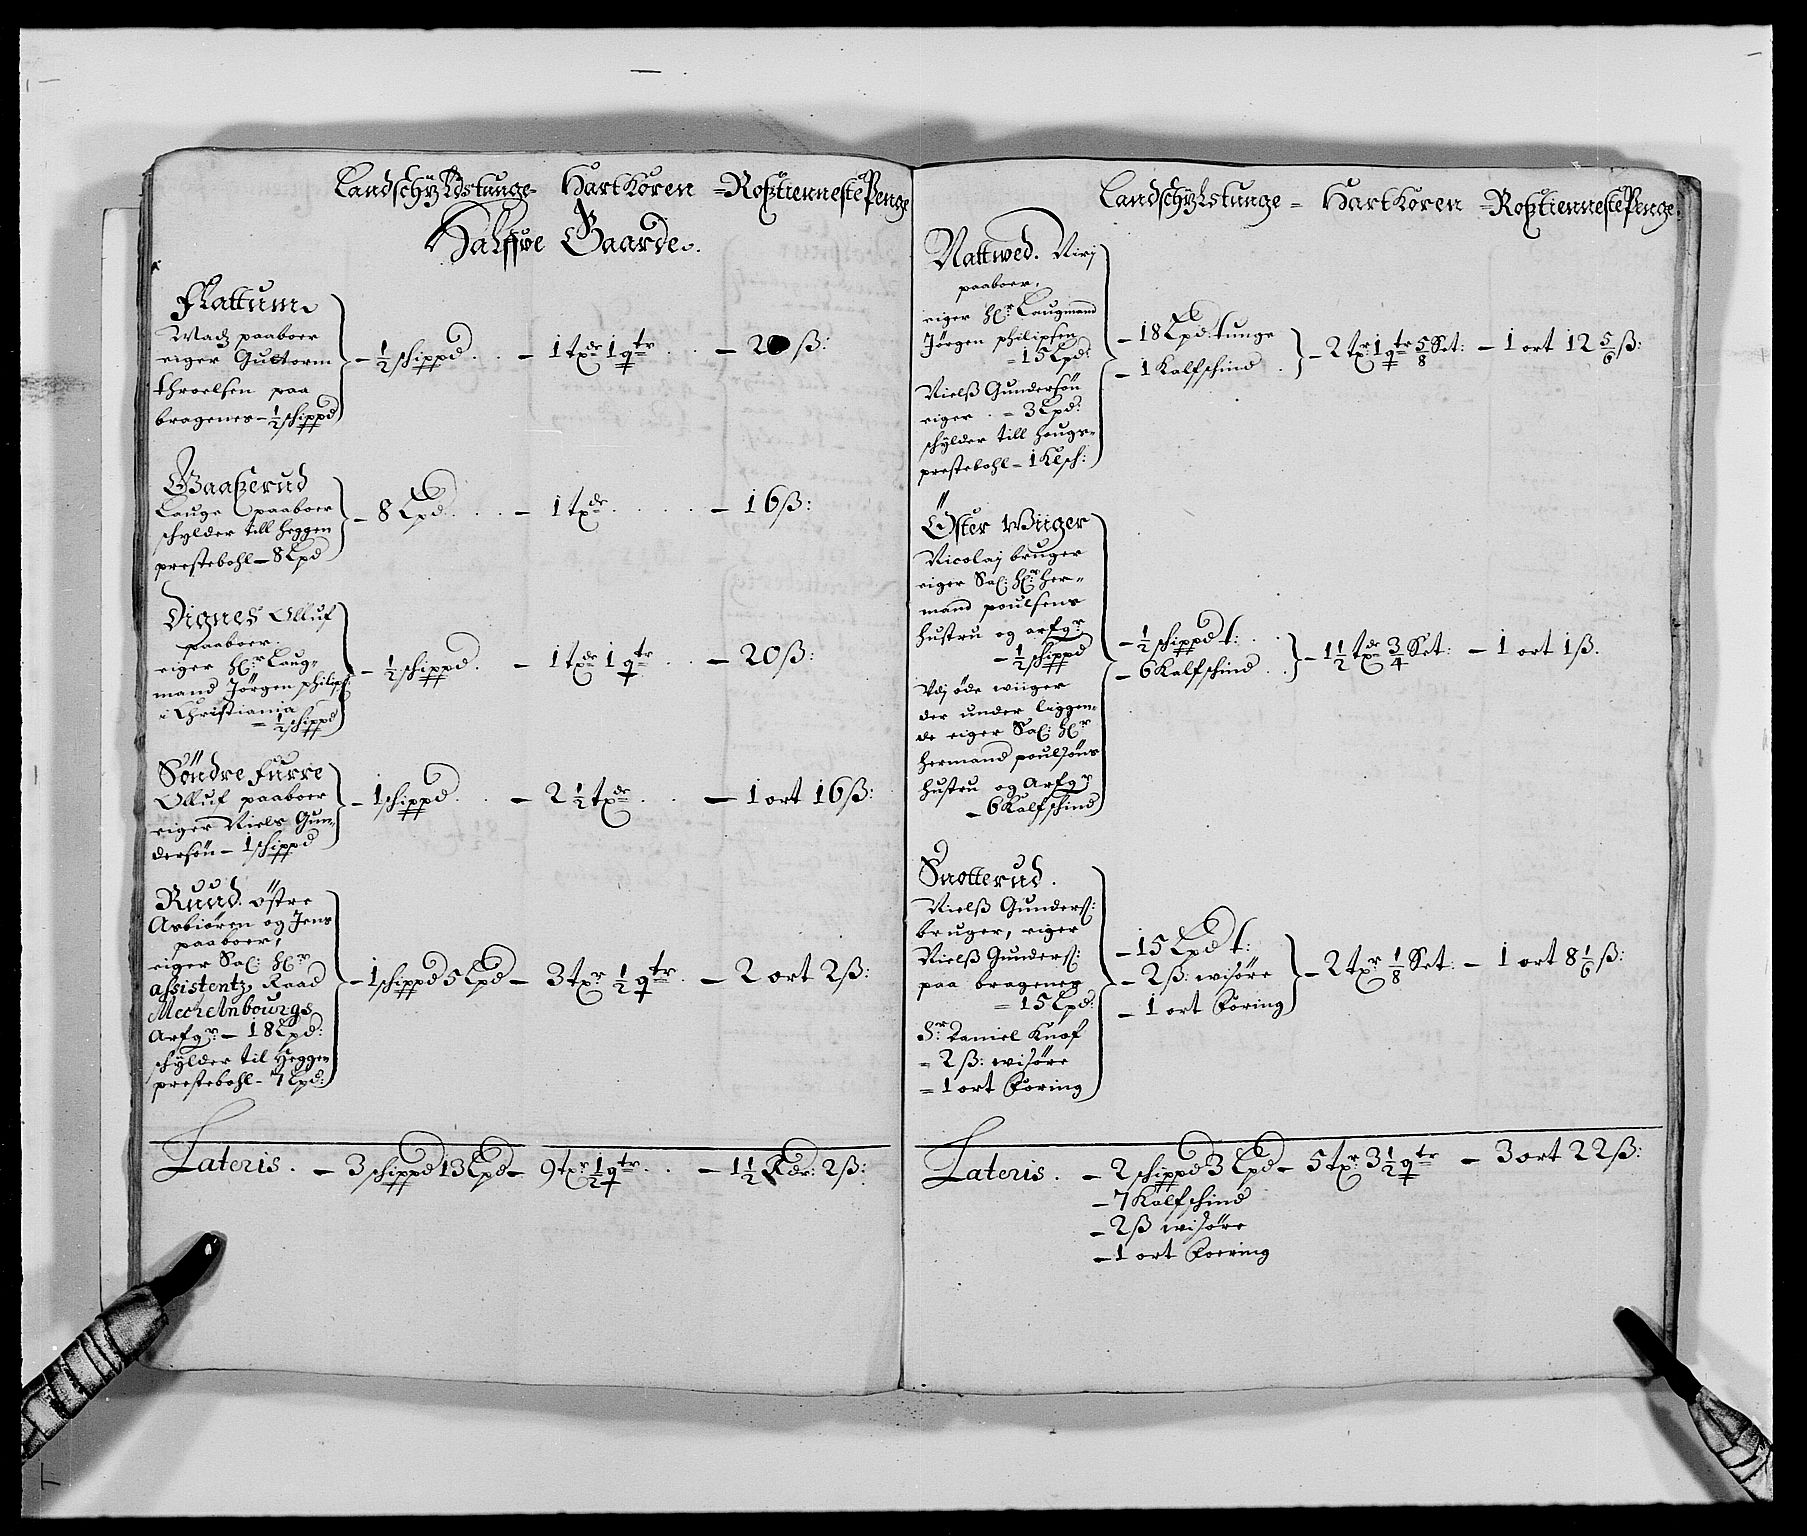 Landschyldstunge - HartKoren = RoßtiennestePenge
Halffue Gaarde.
Flattum
Madz paaboer
eiger Guttorm
throelsen paa
bragenes - ½ schippd
- ½ schippd . . - 1 tøndr 1 qtr . . - 20 ß:
Baaßerud
Lauge paaboer
schylder till heggen
prestebohl - 8 Lpd
- 8 Lpd . . . - 1 tøndr . . . . . - 16 ß:
Dignes Olluf
paaboer.
eiger Hr Laug-
mand Jørgen philips:
i Christiania
= ½ schippd
- ½ schippd . - 1 tøndr 1 qtr . . - 20 ß:
Söndre Furre
Olluf paaboer
eiger Niels Gun-
dersøn - 1 schippd
- 1 schippd . . . - 2 ½ tøndr . . . - 1 ort 16 ß:
Ruud östre
Asbiören og Jens
paaboer,
eiger Sal: Hr
assistentz Raad
Mechelnbourgs
Arfgr: - 18 Lpd:
schylder til Heggen
prestebohl - 7 Lpd:
- 1 schippd 5 Lpd - 3 tør ½ qtr . - 2 ort 2 ß:
Lateris . - 3 schippd 13 Lpd - 9 tør ½ qtr . . - 1 ½ Rdr: 2 ß:
Landschyldstunge = HartKoren = RoßtiennestePenge
Nattwed. Sirj
paaboer,
eiger Hr Laugmand
Jørgen philipsen
= 15 Lpd:
Nielß Gundersøn
eiger . = 3 Lpd:
schylder till hougs-
prestebohl - 1 Klsch:
- 18 Lpd tunge
- 1 Kalfschind .
- 2 tør 1 qtr ⅝ Set: - 1 ort 12 ⅚ ß:
Öster Wiiger
Nicolaj bruger
eiger Sal: Hr Her-
mand poulsens
hustru og arfgr
- ½ schippd
Udj øde wiiger
der under liggen-
de eiger Sal: Hr
Hermand poulsøns
hustru og Arfgr
- 6 Kalfschind
- ½ schippd t: . .
- 6 Kalfschind . .
- 1 ½ tøndr ¾ Set: - 1 ort 1 ß.
Snotterud .
Nielß Gunderß:
bruger, eiger
Nielß Gunderß:
paa bragenes
= 15 Lpd:
Sr Daniel Knof
= 2 ß: wisøre
= 1 ort Foring
- 15 Lpd t:
- 2 ß: wisøre
- 1 ort Foring
- 2 tør ⅛ Set: - 1 ort 8 ⅙ ß:
Lateris . - 2 schippd 3 Lpd - 5 tør 3 ½ qtr - 3 ort 22 ß:
- 7 Kalfschind
- 2 ß wisøre
- 1 ort Foering